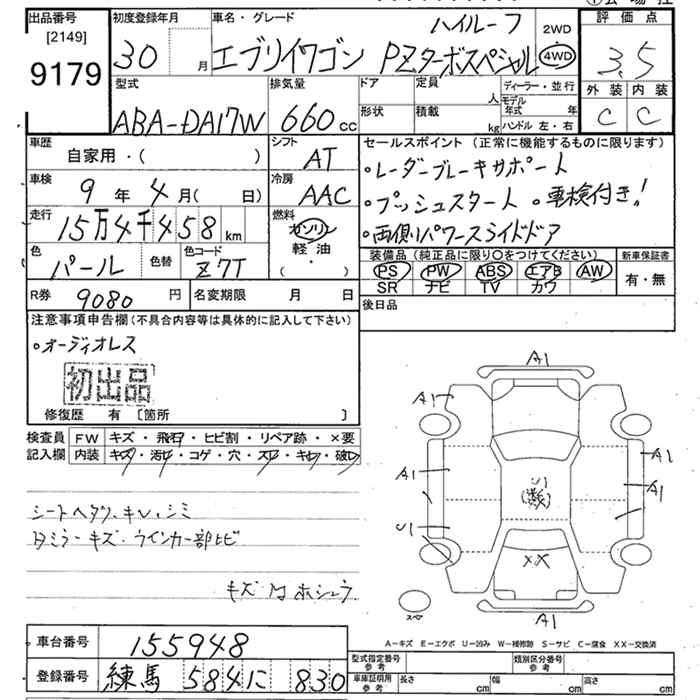 出品番号
[2149]
9179
初度登録年月
30 月
車名・グレード
ハイルーフ
エブリイワゴン PZターボスペシャル
2WD
4WD
評価点
3.5
外装 内装
C C
型式
ABA-DA17W
排気量
660 cc
ドア
形状
定員
人
積載
kg
ディーラー・並行
モデル年式 年
ハンドル 左・右
車歴
自家用・( )
シフト
AT
車検
9 年 4 月( 日)
冷房
AAC
走行
15万4千458 km
燃料
ガソリン
軽油
・
( )
色
パール
色替
色コード
Z7T
R券
9080 円
名変期限 月 日
セールスポイント (正常に機能するものに限ります)
・レーダーブレーキサポート
・プッシュスタート ・車検付き!
・両側パワースライドドア
装備品 (純正品に限り○をつけてください)
PS PW ABS エアB AW
SR ナビ TV カワ
新車保証書
有・無
後日品
注意事項申告欄 (不具合内容等は具体的に記入して下さい)
・オーディオレス
初出品
修復歴 有 [箇所 ]
検査員記入欄
FW キズ・飛石・ヒビ割・リペア跡・×要
内装 キズ・汚レ・コゲ・穴・スレ・キレ・破レ
シートヘタリ、キレ、シミ
ミラーキズ・ウインカー部ヒビ
A1
A1
A1
A1
A1
U1
U1
(多数)
××
A1
スペア
A-キズ E-エクボ U-凹み W-補修跡 S-サビ C-腐食 XX-交換済
車台番号
155948
登録番号
練馬 584 に 830
型式指定番号 参考
類別区分番号 参考
車庫証明用 参考
長さ cm
幅 cm
高さ cm